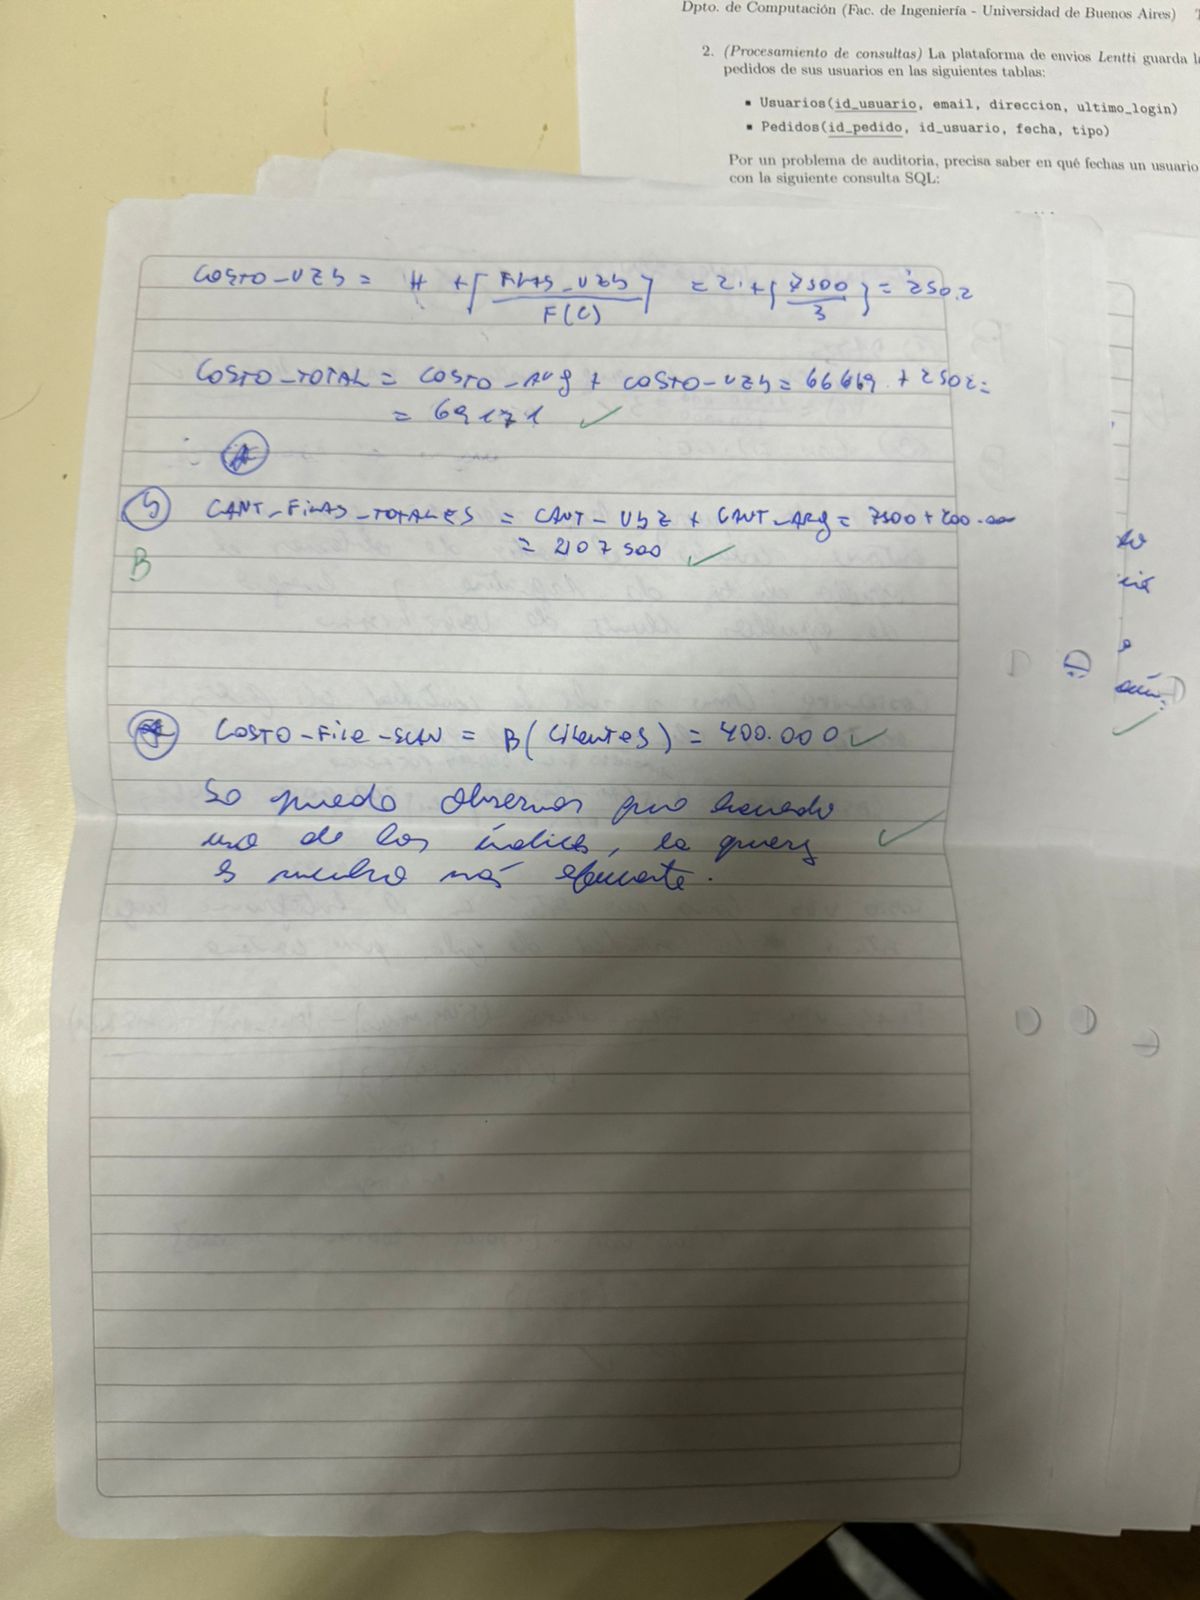 Dpto. de Computación (Fac. de Ingeniería - Universidad de Buenos Aires)
2. (Procesamiento de consultas) La plataforma de envios Lentti guarda l
pedidos de sus usuarios en las siguientes tablas:
▪ Usuarios(id_usuario, email, direccion, ultimo_login)
▪ Pedidos(id_pedido, id_usuario, fecha, tipo)
Por un problema de auditoria, precisa saber en qué fechas un usuario
con la siguiente consulta SQL:
COSTO_UZB = H + ⌈FILAS_UZB / F(C)⌉ = 2 + ⌈7500 / 3⌉ = 2502
COSTO_TOTAL = COSTO_ARG + COSTO_UZB = 66669 + 2502 =
= 69171 ✓
b) CANT_FILAS_TOTALES = CANT_UBZ + CANT_ARG = 7500 + 200.000
= 207500 ✓
B
COSTO_FILE_SCAN = B(Clientes) = 400.000 ✓
Se puede observar que haciendo
uso de los índices, la query ✓
es mucho más eficiente.